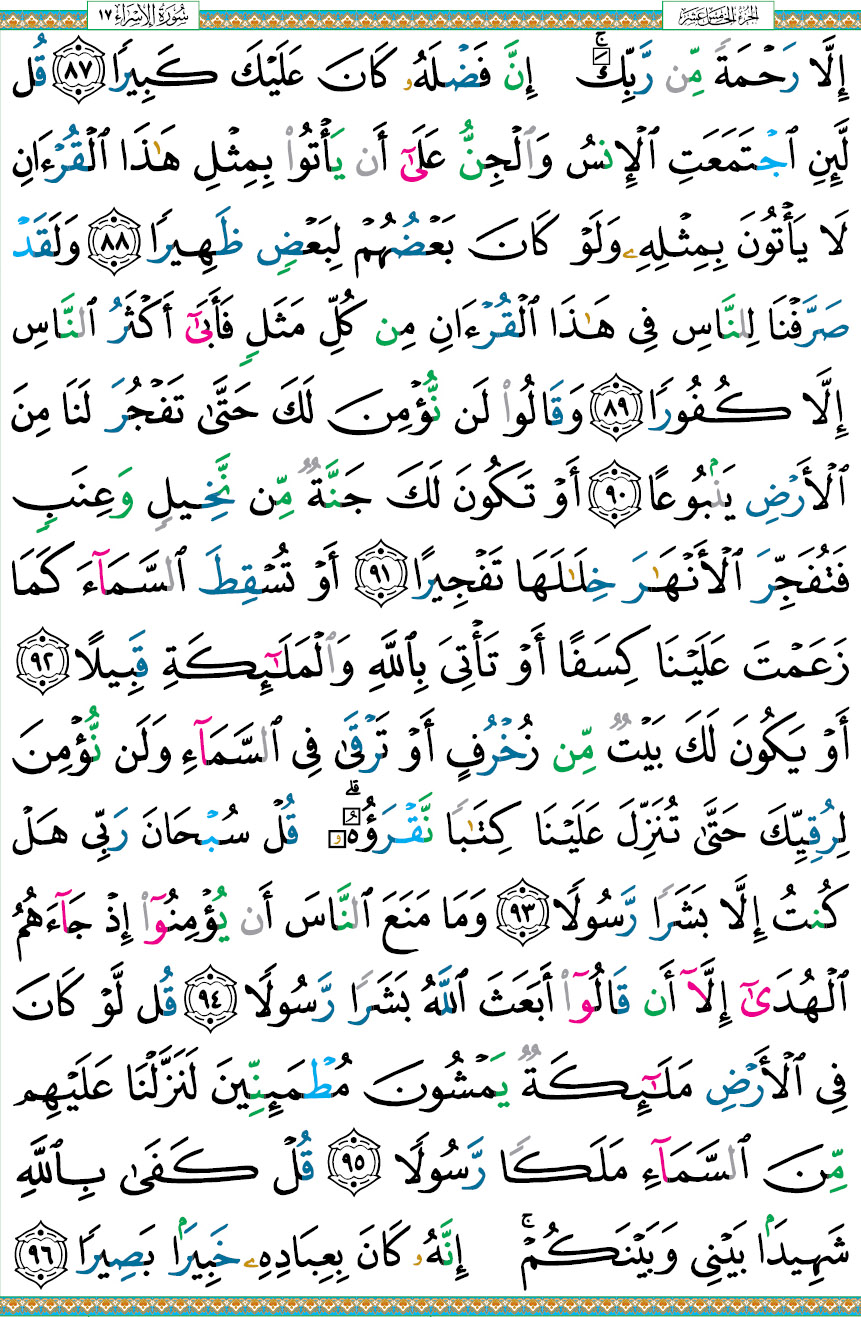 سُورَةُ الإِسْرَاءِ ١٧ الجُزْءُ الخَامِسَ عَشَرَ
إِلَّا رَحْمَةً مِّن رَّبِّكَ ۚ إِنَّ فَضْلَهُۥ كَانَ عَلَيْكَ كَبِيرًا ٨٧ قُل
لَّئِنِ ٱجْتَمَعَتِ ٱلْإِنسُ وَٱلْجِنُّ عَلَىٰٓ أَن يَأْتُوا۟ بِمِثْلِ هَٰذَا ٱلْقُرْءَانِ
لَا يَأْتُونَ بِمِثْلِهِۦ وَلَوْ كَانَ بَعْضُهُمْ لِبَعْضٍ ظَهِيرًا ٨٨ وَلَقَدْ
صَرَّفْنَا لِلنَّاسِ فِى هَٰذَا ٱلْقُرْءَانِ مِن كُلِّ مَثَلٍ فَأَبَىٰٓ أَكْثَرُ ٱلنَّاسِ
إِلَّا كُفُورًا ٨٩ وَقَالُوا۟ لَن نُّؤْمِنَ لَكَ حَتَّىٰ تَفْجُرَ لَنَا مِنَ
ٱلْأَرْضِ يَنۢبُوعًا ٩٠ أَوْ تَكُونَ لَكَ جَنَّةٌ مِّن نَّخِيلٍ وَعِنَبٍ
فَتُفَجِّرَ ٱلْأَنْهَٰرَ خِلَٰلَهَا تَفْجِيرًا ٩١ أَوْ تُسْقِطَ ٱلسَّمَآءَ كَمَا
زَعَمْتَ عَلَيْنَا كِسَفًا أَوْ تَأْتِىَ بِٱللَّهِ وَٱلْمَلَٰٓئِكَةِ قَبِيلًا ٩٢
أَوْ يَكُونَ لَكَ بَيْتٌ مِّن زُخْرُفٍ أَوْ تَرْقَىٰ فِى ٱلسَّمَآءِ وَلَن نُّؤْمِنَ
لِرُقِيِّكَ حَتَّىٰ تُنَزِّلَ عَلَيْنَا كِتَٰبًا نَّقْرَؤُهُۥ ۗ قُلْ سُبْحَانَ رَبِّى هَلْ
كُنتُ إِلَّا بَشَرًا رَّسُولًا ٩٣ وَمَا مَنَعَ ٱلنَّاسَ أَن يُؤْمِنُوٓا۟ إِذْ جَآءَهُمُ
ٱلْهُدَىٰٓ إِلَّآ أَن قَالُوٓا۟ أَبَعَثَ ٱللَّهُ بَشَرًا رَّسُولًا ٩٤ قُل لَّوْ كَانَ
فِى ٱلْأَرْضِ مَلَٰٓئِكَةٌ يَمْشُونَ مُطْمَئِنِّينَ لَنَزَّلْنَا عَلَيْهِم
مِّنَ ٱلسَّمَآءِ مَلَكًا رَّسُولًا ٩٥ قُلْ كَفَىٰ بِٱللَّهِ
شَهِيدًۢا بَيْنِى وَبَيْنَكُمْ ۚ إِنَّهُۥ كَانَ بِعِبَادِهِۦ خَبِيرًۢا بَصِيرًا ٩٦